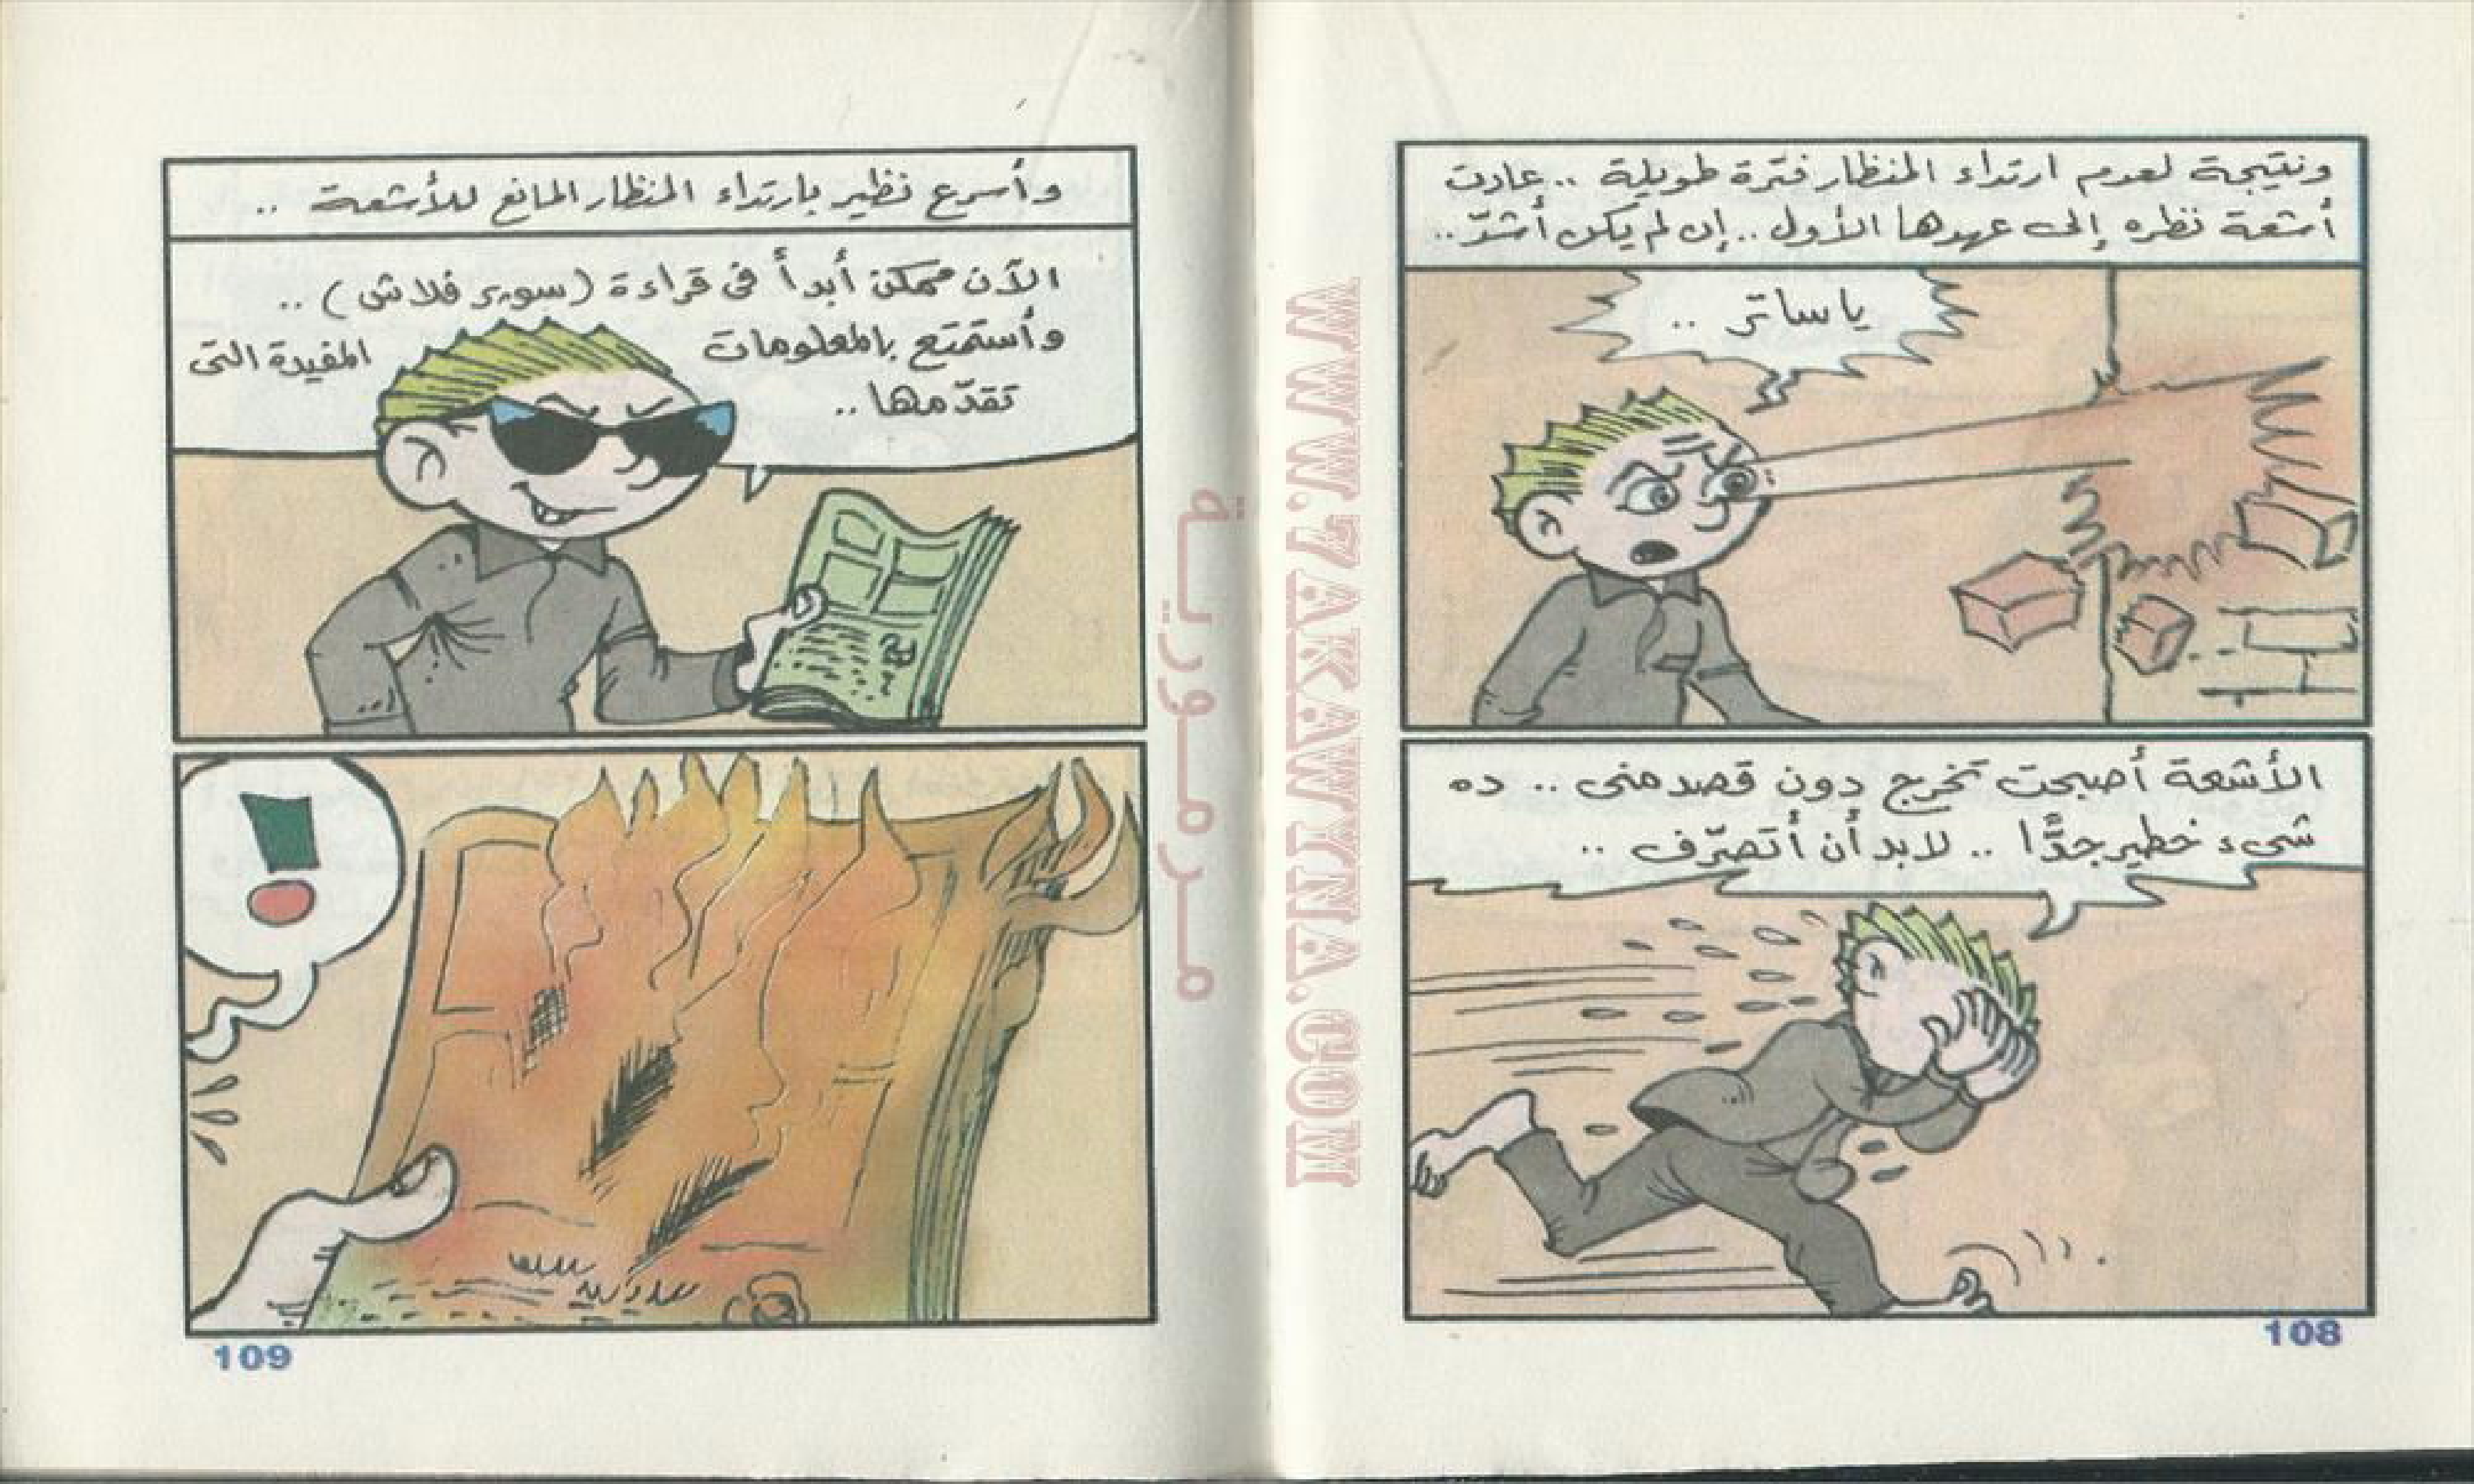 ونتيجة لعدم ارتداء المنظار فترة طويلة .. عادت
أشعة نظره إلى عهدها الأول .. إن لم يكن أشدّ ..
ياساتر ..
الأشعة أصبحت تخرج دون قصد منى .. ده
شىء خطير جدًّا .. لابد أن أتصرّف ..
108
وأسرع نظير بارتداء المنظار المانع للأشعة ..
الآن ممكن أبدأ فى قراءة (سوبر فلاش) ..
وأستمتع بالمعلومات المفيدة التى
تقدّمها ..
!
109
مرمورية
WWW.7AKAWINA.COM